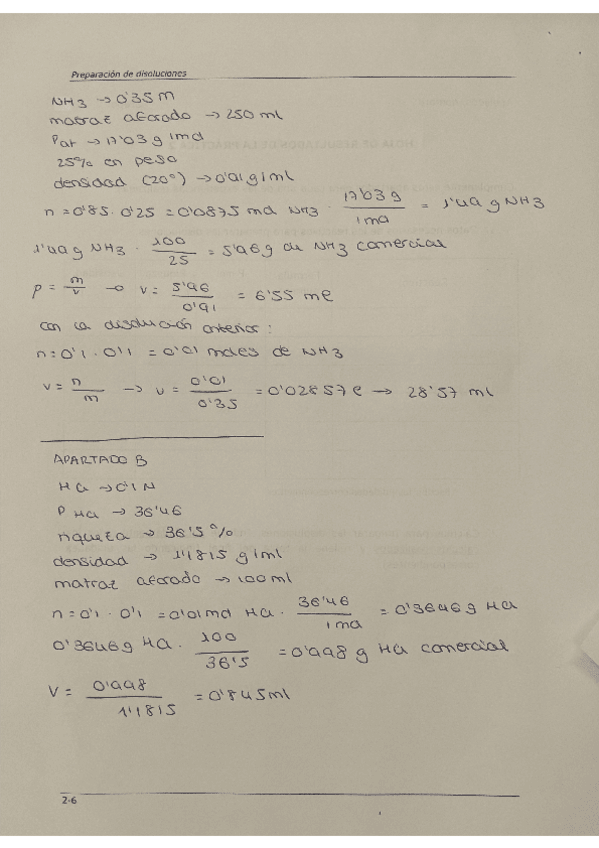 Preparación de disoluciones
NH3 → 0'35 M
matraz aforado → 250 ml
Pat → 17'03 g/mol
25% en peso
densidad (20º) → 0'91 g/ml
n = 0'85 · 0'25 = 0'0875 mol NH3 · 17'03 g / 1 mol = 1'49 g NH3
1'49 g NH3 · 100 / 25 = 5'96 g de NH3 comercial
ρ = m/v → v = 5'96 / 0'91 = 6'55 ml
con la disolución anterior:
n = 0'1 · 0'1 = 0'01 moles de NH3
v = n/m → v = 0'01 / 0'35 = 0'02857 l → 28'57 ml
APARTADO B
HCl → 0'1 N
P HCl → 36'46
riqueza → 36'5 %
densidad → 1'1815 g/ml
matraz aforado → 100 ml
n = 0'1 · 0'1 = 0'01 mol HCl · 36'46 / 1 mol = 0'3646 g HCl
0'3646 g HCl · 100 / 36'5 = 0'998 g HCl comercial
V = 0'998 / 1'1815 = 0'845 ml
2-6